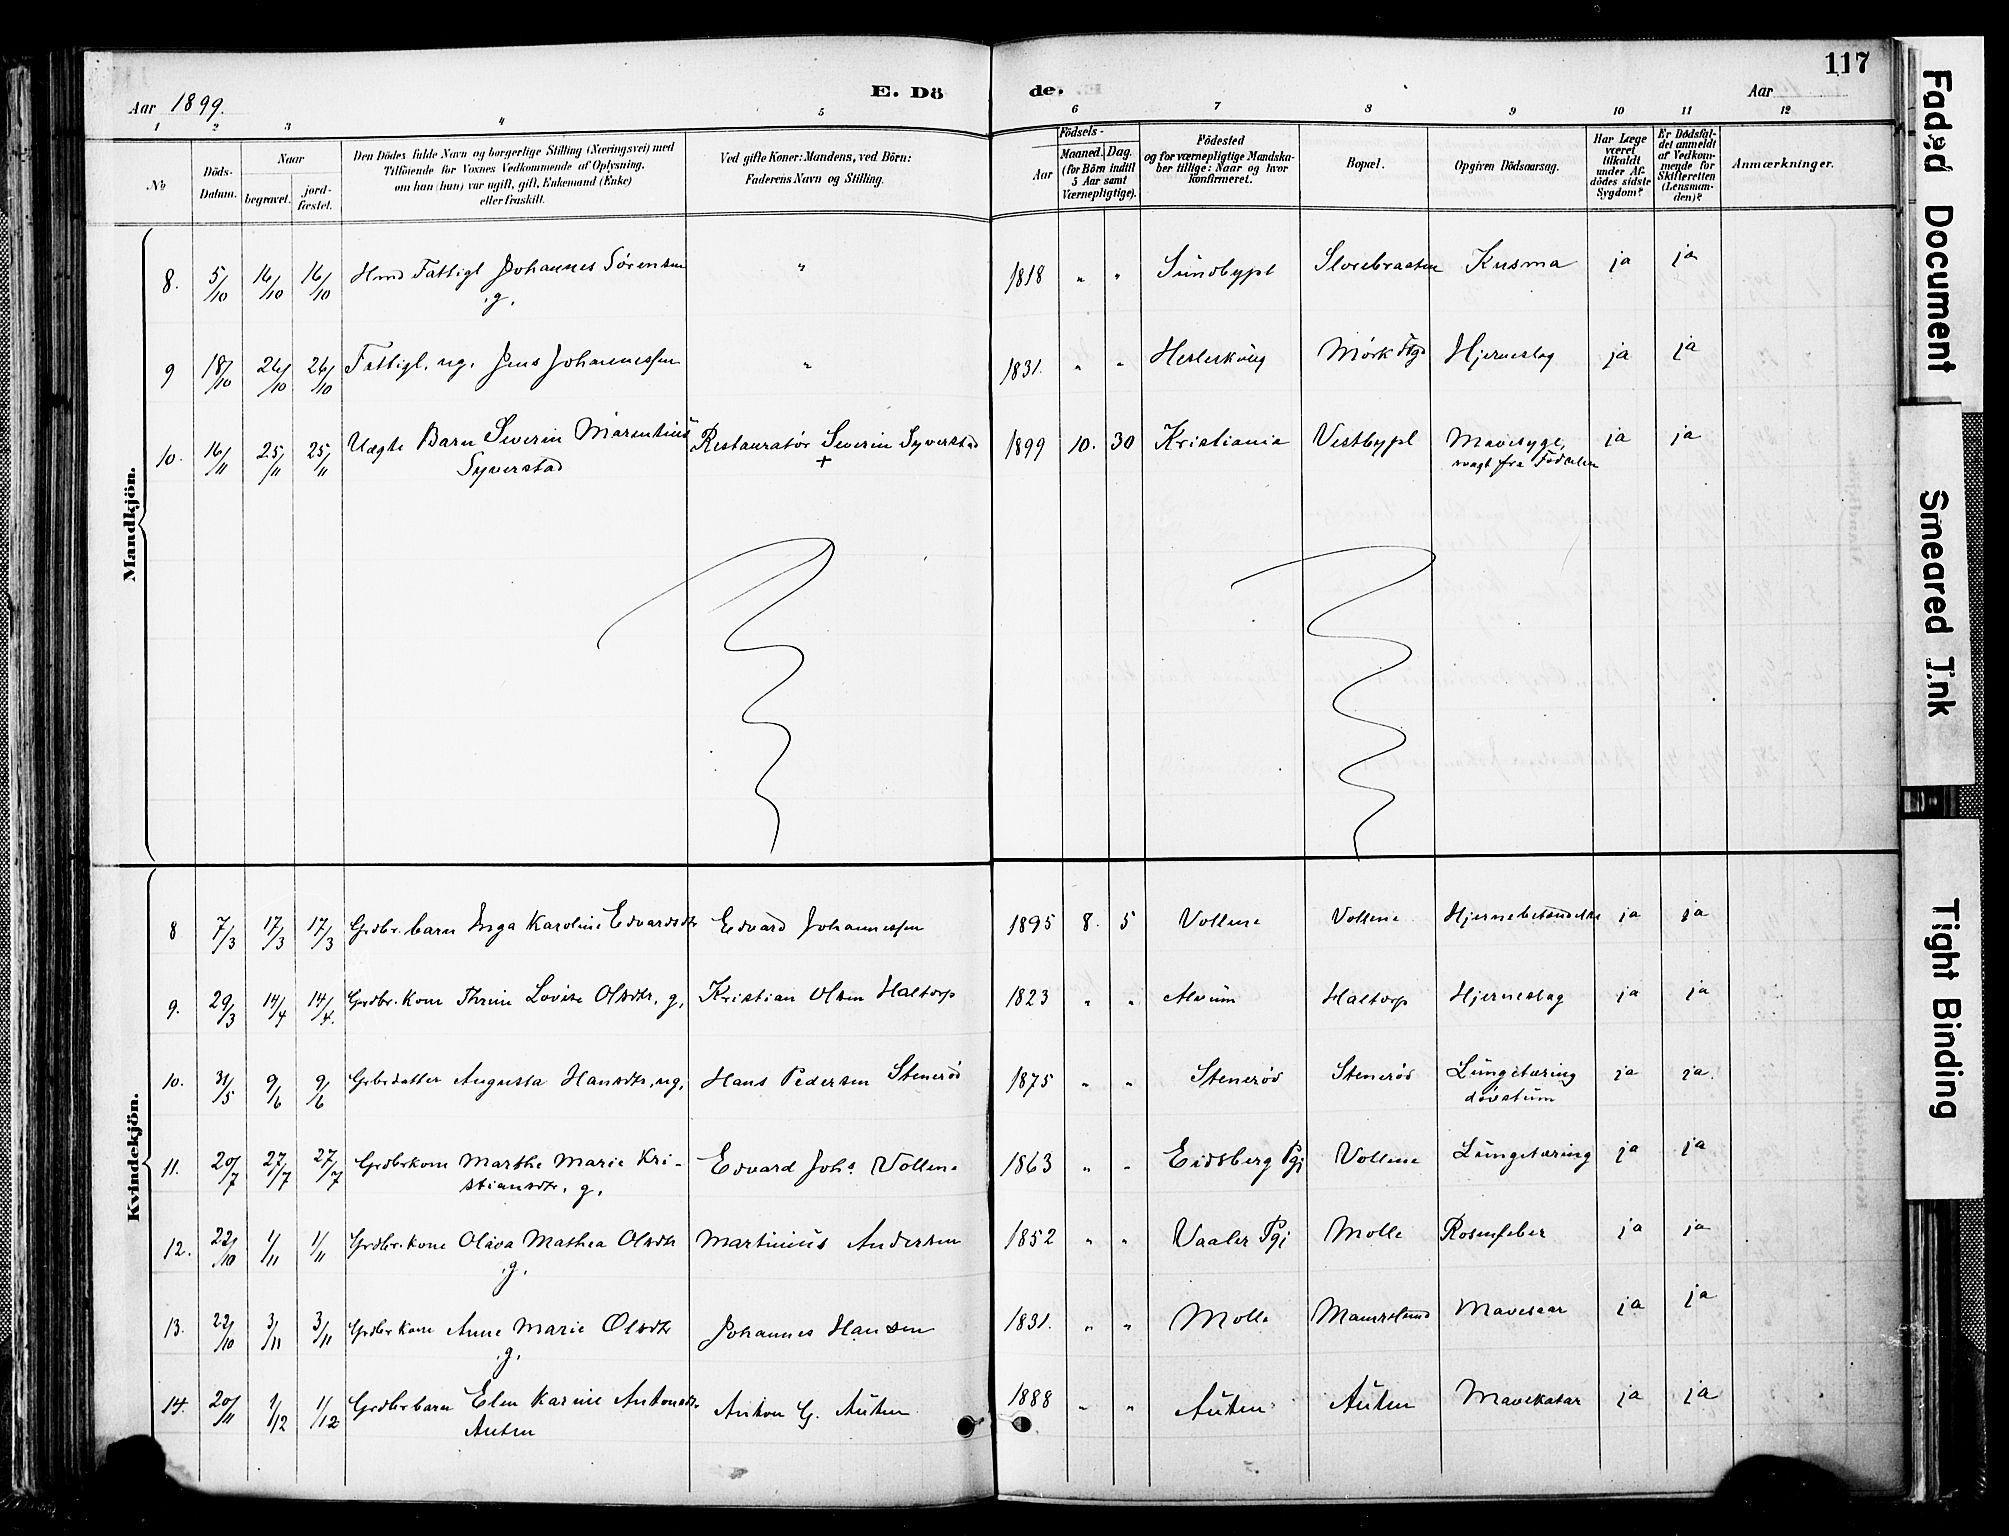 117
Aar 1899.
E. Dö
de.
Aar
1 2 3 4 5 6 7 8 9 10 11 12
No
Döds-Datum.
Naar
begravet.
jord-fæstet.
Den Dödes fulde Navn og borgerlige Stilling (Næringsvei) med
Tilföiende for Voxnes Vedkommende af Oplysning,
om han (hun) var ugift, gift, Enkemand (Enke)
eller fraskilt.
Ved gifte Koner: Mandens, ved Börn:
Faderens Navn og Stilling.
Födsels-
Aar
Maaned. Dag.
(for Börn indtil
5 Aar samt
Værnepligtige).
Födested
og for værnepligtige Mandska-
ber tillige: Naar og hvor
konfirmeret.
Bopæl.
Opgiven Dödsaarsag.
Har Læge
været
tilkaldt
under Af-
dödes sidste
Sygdom?
Er Dödsfal-
det anmeldt
af Vedkom-
mende for
Skifteretten
(Lensman-
den)?
Anmærkninger.
Mandkjön.
8. 5/10 16/10 16/10 Hmd Fattigl Johannes Sörensen " 1818 " " Sundbypl Slorebraaten Krisma ja ja
g.
9 18/10 26/10 26/10 Fattigl. ug. Jens Johannessen " 1831. " " Hesleskaug Mörk Ftgd Hjerneslag ja ja
10. 16/11 25/11 25/11 Uægte Barn Severin Marentius Restauratör Severin Syverstad 1899 10. 30 Kristiania Vestbypl Mavesyge, ja ja
Syverstad + svagt fra Födselen
Kvindekjön.
8 7/3 17/3 17/3 Grdbr. barn Inga Karoline Edvardsdtr Edvard Johannessen 1895 8. 5 Vollene Vollene Hjernebetændelse ja ja
9. 29/3 14/4 14/4. Grdbr. Kone Thrine Lovise Olsdtr, g, Kristian Olsen Haltorp 1823 " " Alvum Haltorp Hjerneslag ja ja
10. 31/5 9/6 9/6 Grbrdatter Augusta Hansdtr, ug, Hans Pedersen Steneröd 1875 " " Steneröd Steneröd Lungetæring ja ja.
dövstum
11. 20/7 27/7 27/7 Grdbrkone Marthe Marie Kri- Edvard Johs Vollene 1863 " " Eidsberg Pgj Vollene Lungetæring ja ja
stiansdtr. g.
12. 22/10 1/11 1/11 Grdbr. kone Olava Mathea Olsdtr Martinius Andersen 1852 " " Vaaler Pgj Molle Rosenfeber ja ja
g.
13. 22/10 3/11 3/11 Grdbrkone Anne Marie Olsdtr Johannes Hansen 1831. " " Molle Mavesaar ja ja
g.
14. 20/11 1/12 1/12 Grdbrbarn Elen Karine Antonsdtr. Anton G. Auten 1888 " " Auten Auten Mavekatar ja ja
Auten
Faded Document
Smeared Ink
Tight Binding